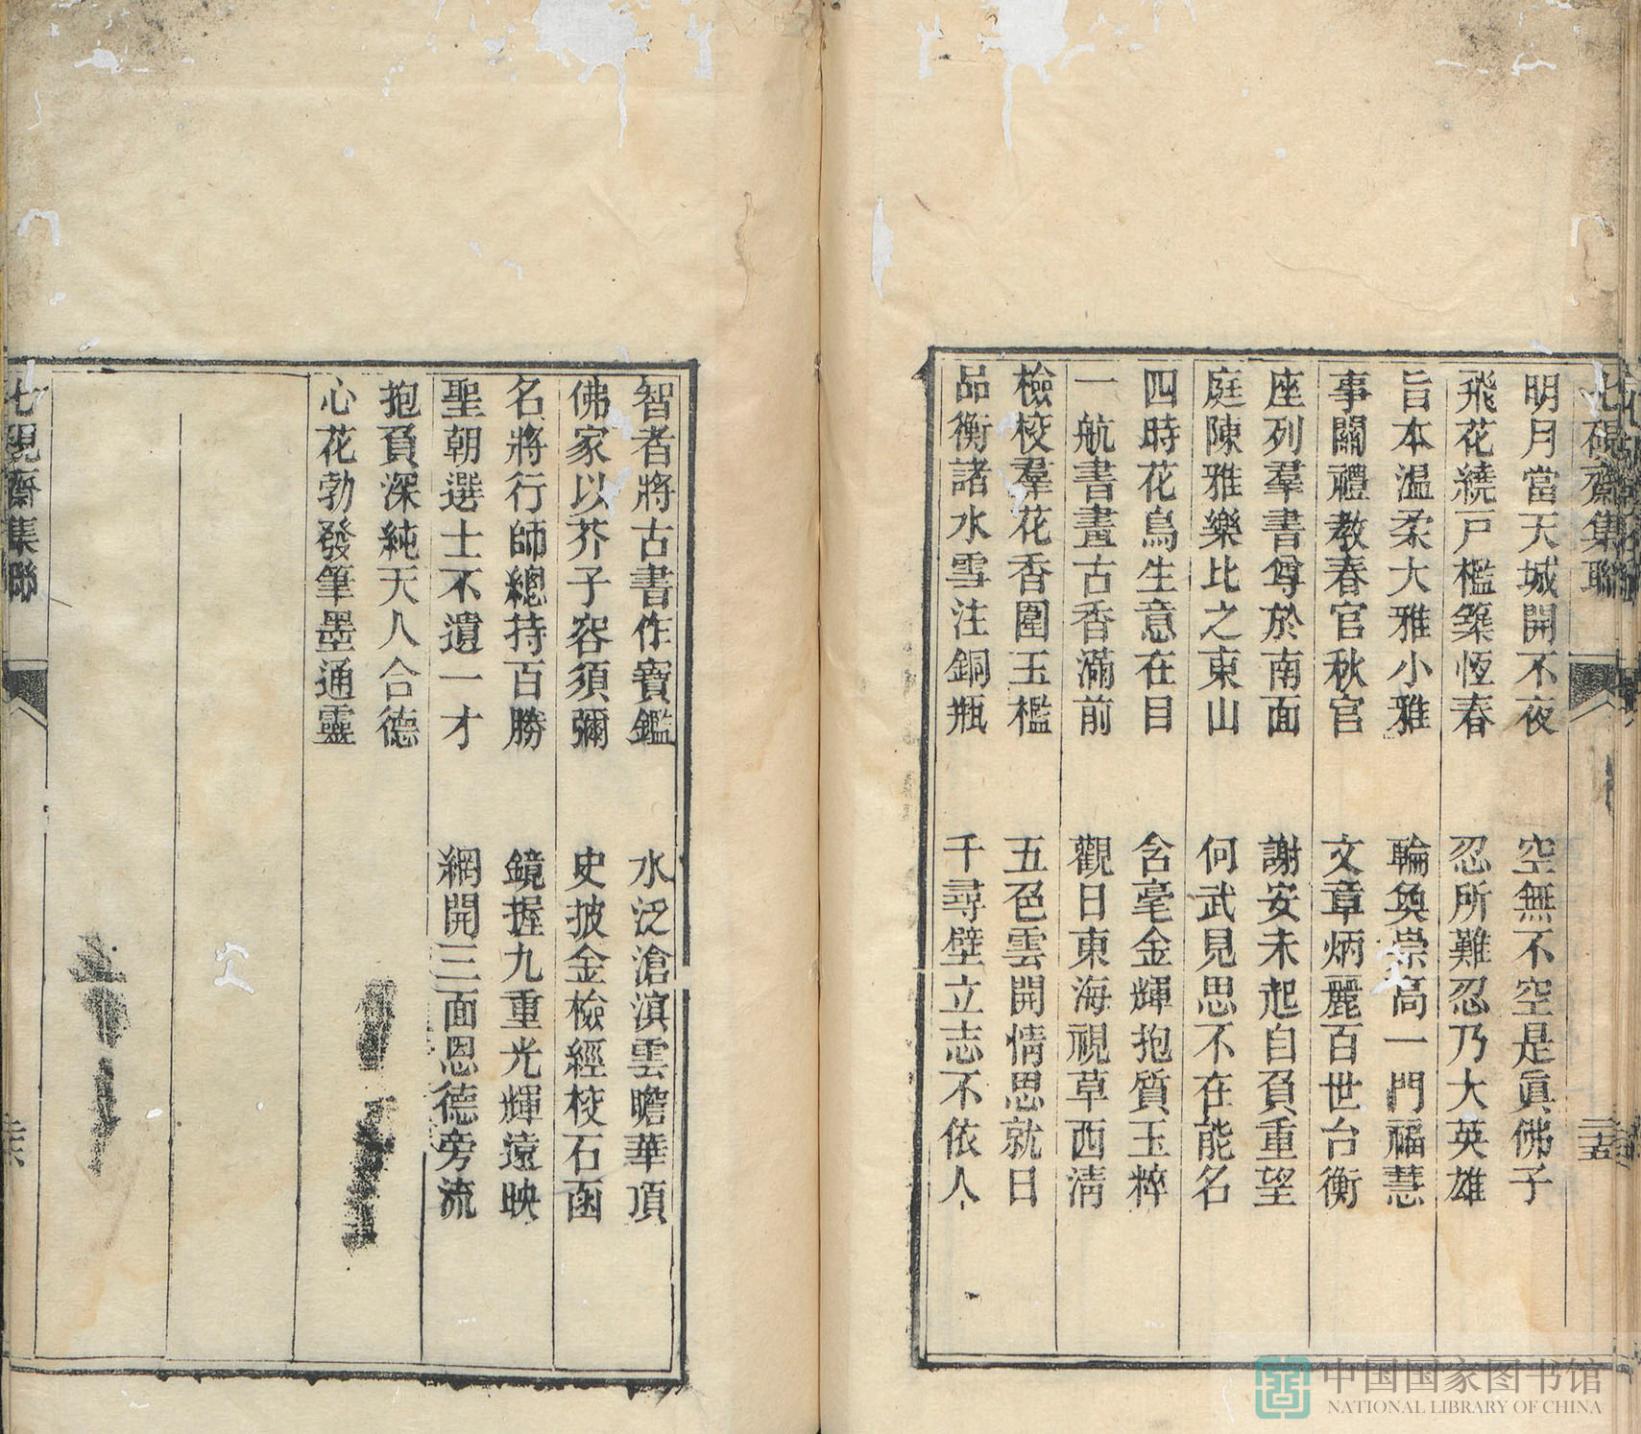 七硯齋集聯
二十五
明月當天城開不夜 空無不空是眞佛子
飛花繞戸檻築恆春 忍所難忍乃大英雄
旨本温柔大雅小雅 輪奐崇高一門福慧
事關禮教春官秋官 文章炳麗百世台衡
座列羣書尊於南面 謝安未起自負重望
庭陳雅樂比之東山 何武見思不在能名
四時花鳥生意在目 含毫金輝抱質玉粹
一航書畫古香滿前 觀日東海視草西清
檢校羣花香圍玉檻 五色雲開情思就日
品衡諸水雪注銅瓶 千尋壁立志不依人
智者將古書作寶鑑 水泛滄溟雲瞻華頂
佛家以芥子容須彌 史披金檢經校石函
名將行師總持百勝 鏡握九重光輝遠映
聖朝選士不遺一才 網開三面恩德旁流
抱負深純天人合德
心花勃發筆墨通靈
七硯齋集聯
二十六
中国国家图书馆
NATIONAL LIBRARY OF CHINA